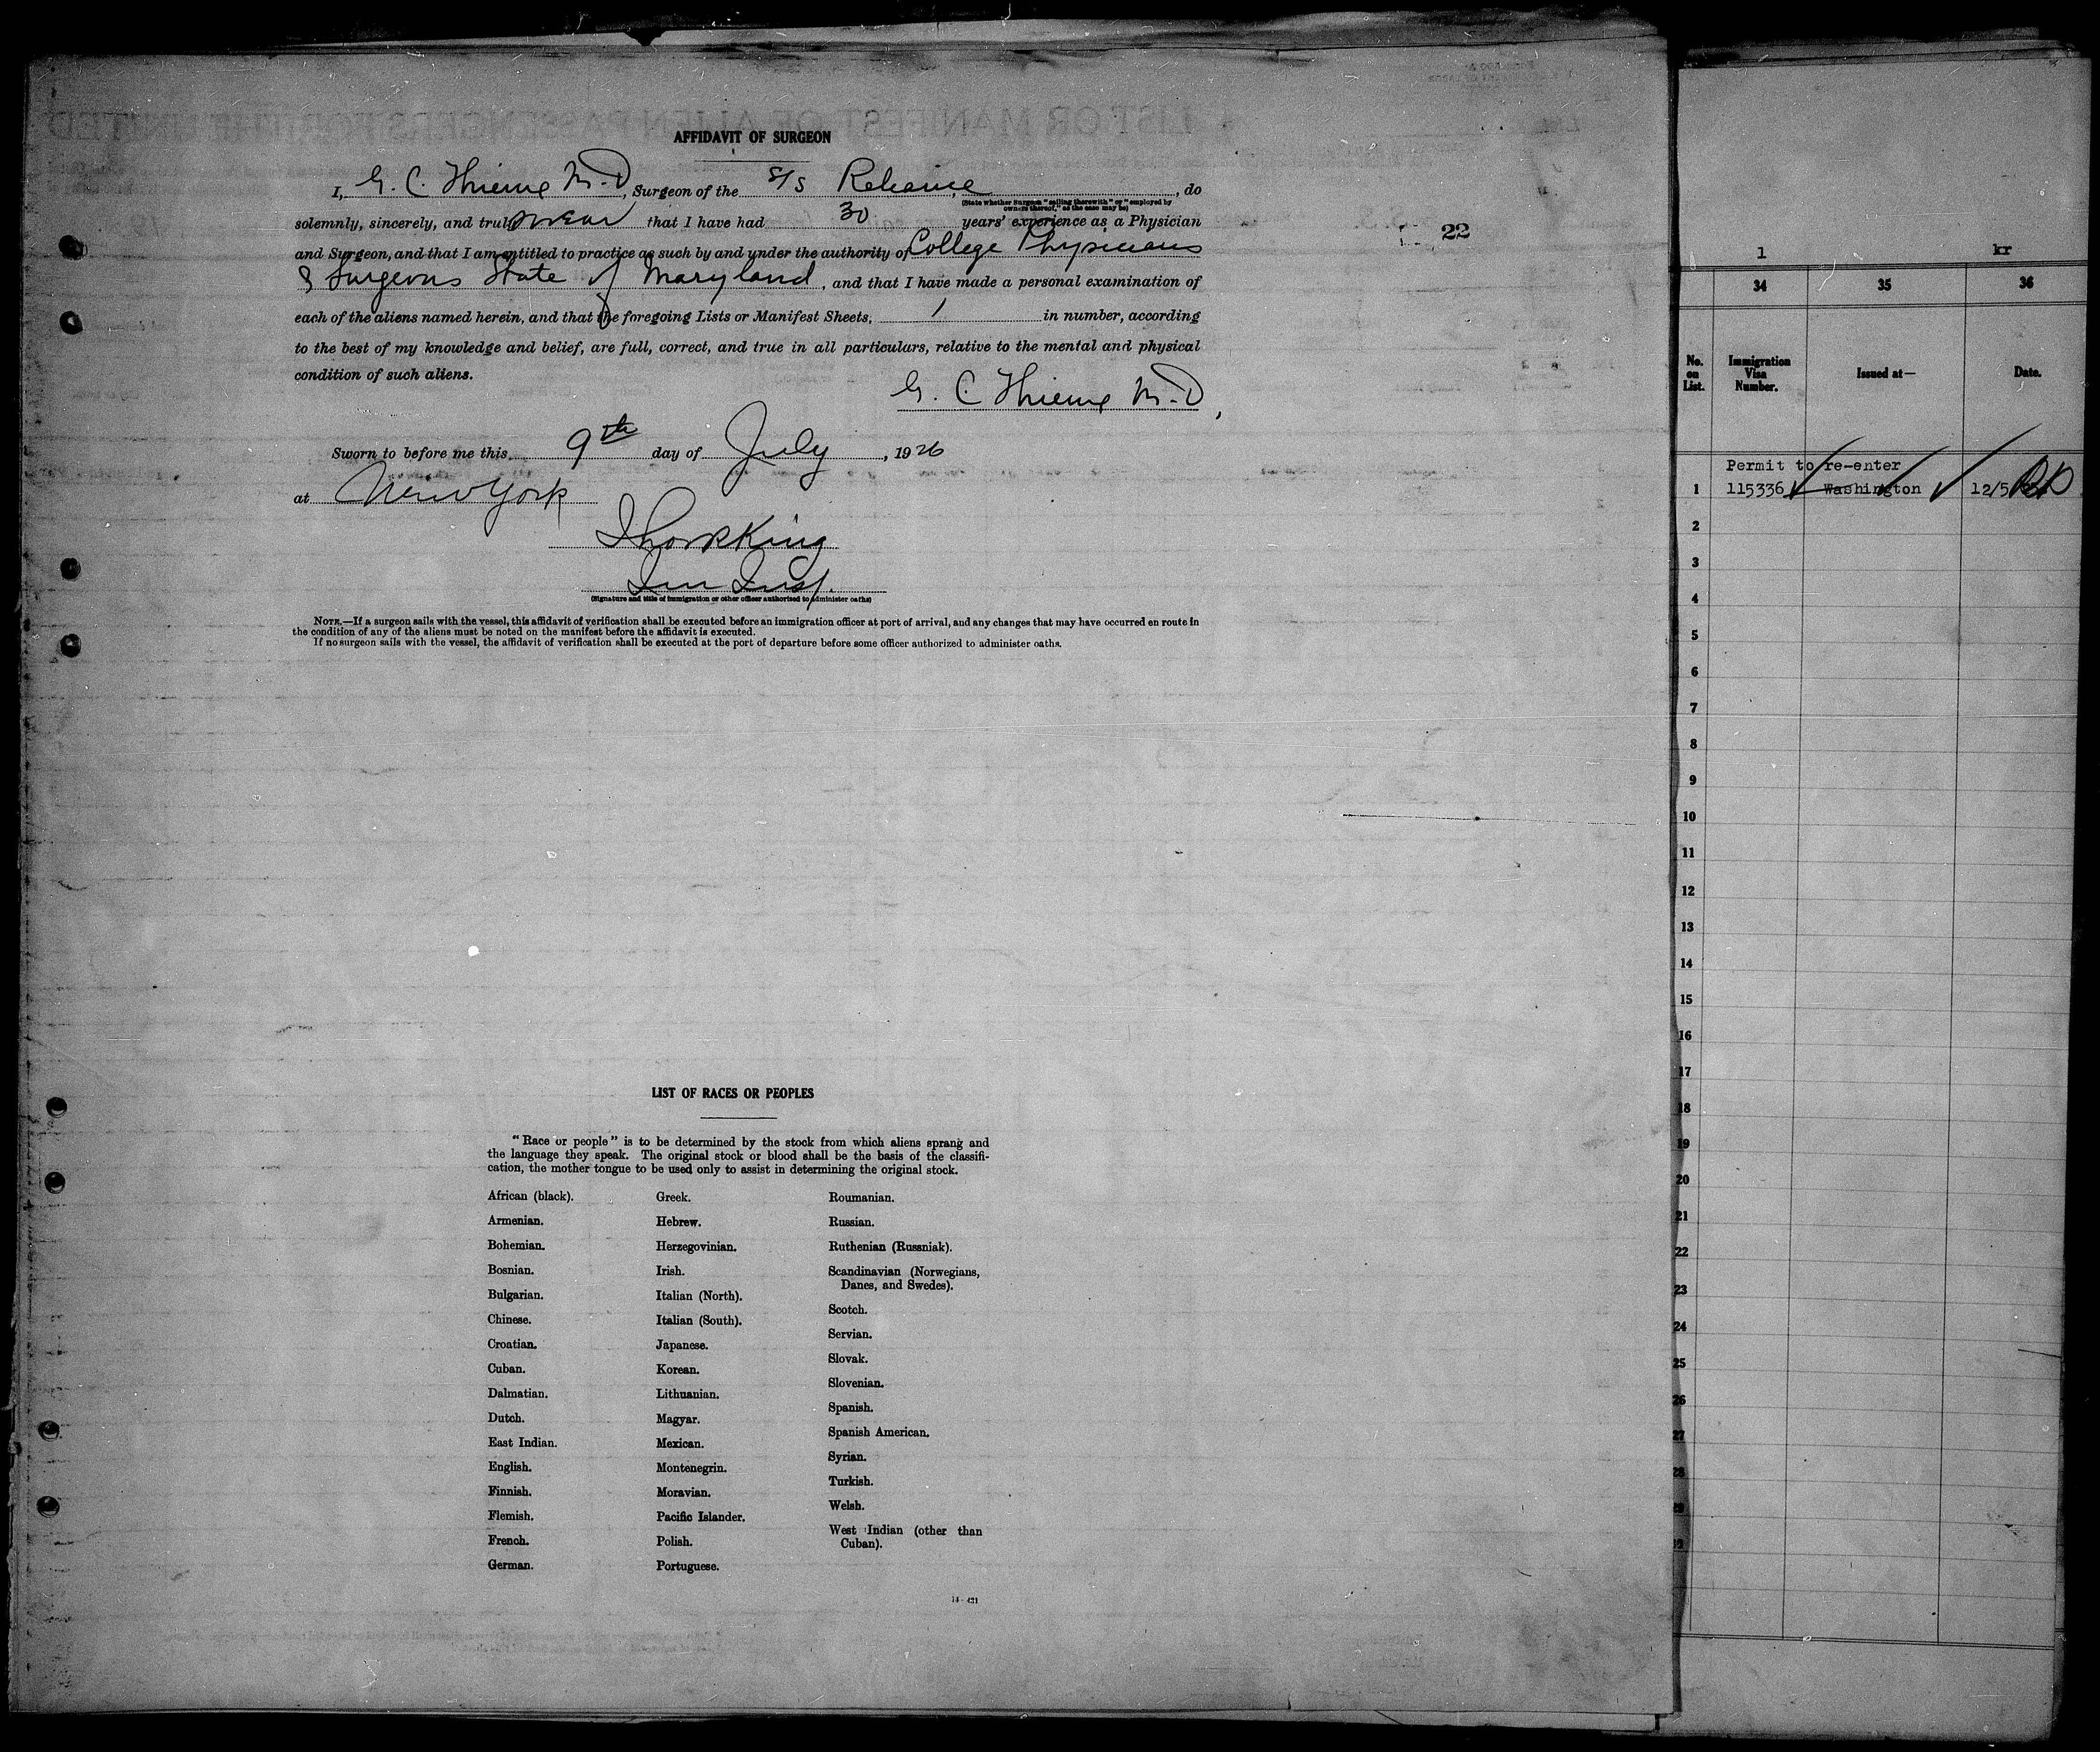 AFFIDAVIT OF SURGEON
I, G. C. Thieme M.D, Surgeon of the S/S Reliance, do
(State whether Surgeon "sailing therewith" or "employed by
owners thereof," as the case may be)
solemnly, sincerely, and truly swear that I have had 30 years' experience as a Physician
and Surgeon, and that I am entitled to practice as such by and under the authority of College Physicians
& Surgeons State of Maryland, and that I have made a personal examination of
each of the aliens named herein, and that the foregoing Lists or Manifest Sheets, 1 in number, according
to the best of my knowledge and belief, are full, correct, and true in all particulars, relative to the mental and physical
condition of such aliens.
G. C Thieme M.D,
Sworn to before me this 9th day of July, 1926
at New York
King
Im Insp.
(Signature and title of immigration or other officer authorized to administer oaths)
NOTE.—If a surgeon sails with the vessel, this affidavit of verification shall be executed before an immigration officer at port of arrival, and any changes that may have occurred en route in
the condition of any of the aliens must be noted on the manifest before the affidavit is executed.
If no surgeon sails with the vessel, the affidavit of verification shall be executed at the port of departure before some officer authorized to administer oaths.
22
LIST OF RACES OR PEOPLES
"Race or people" is to be determined by the stock from which aliens sprang and
the language they speak. The original stock or blood shall be the basis of the classifi-
cation, the mother tongue to be used only to assist in determining the original stock.
African (black).
Armenian.
Bohemian.
Bosnian.
Bulgarian.
Chinese.
Croatian.
Cuban.
Dalmatian.
Dutch.
East Indian.
English.
Finnish.
Flemish.
French.
German.
Greek.
Hebrew.
Herzegovinian.
Irish.
Italian (North).
Italian (South).
Japanese.
Korean.
Lithuanian.
Magyar.
Mexican.
Montenegrin.
Moravian.
Pacific Islander.
Polish.
Portuguese.
Roumanian.
Russian.
Ruthenian (Russniak).
Scandinavian (Norwegians,
Danes, and Swedes).
Scotch.
Servian.
Slovak.
Slovenian.
Spanish.
Spanish American.
Syrian.
Turkish.
Welsh.
West Indian (other than
Cuban).
1 kr
34 35 36
No. on List. Immigration Visa Number. Issued at— Date.
Permit to re-enter
1 115336 Washington 12/5
2
3
4
5
6
7
8
9
10
11
12
13
14
15
16
17
18
19
20
21
22
23
24
25
26
27
28
29